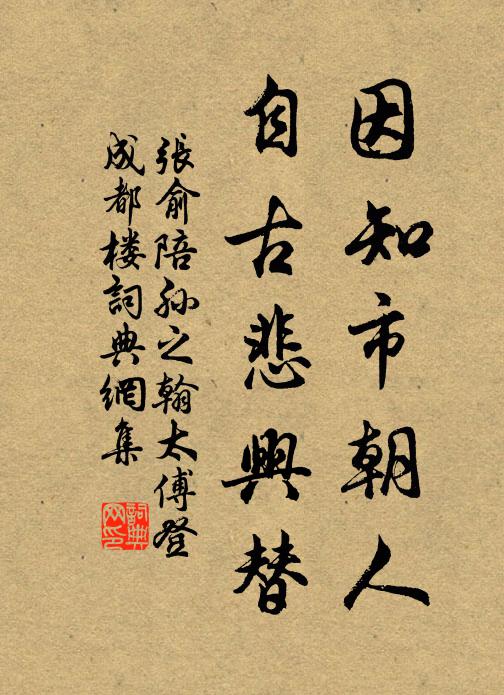 因知市朝人
自古悲興替
張俞陪孙之翰太傅登
成都楼詞典網集
詞典
网印